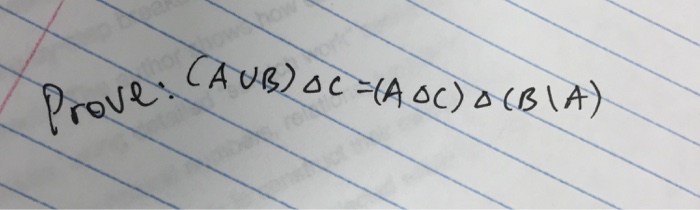 Prove: (A∪B)△C=(A△C)△(B\A)